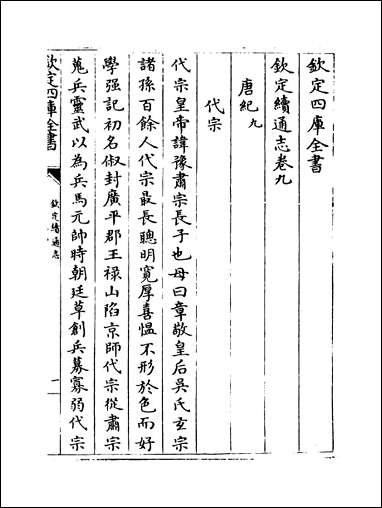 欽定四庫全書
欽定續通志卷九
唐紀九
代宗
代宗皇帝諱豫肅宗長子也母曰章敬皇后吳氏玄宗
諸孫百餘人代宗最長聰明寛厚喜愠不形於色而好
學强記初名俶封廣平郡王祿山陷京師代宗從肅宗
蒐兵靈武以為兵馬元帥時朝廷草創兵募寡弱代宗
欽定四庫全書
欽定續通志
一